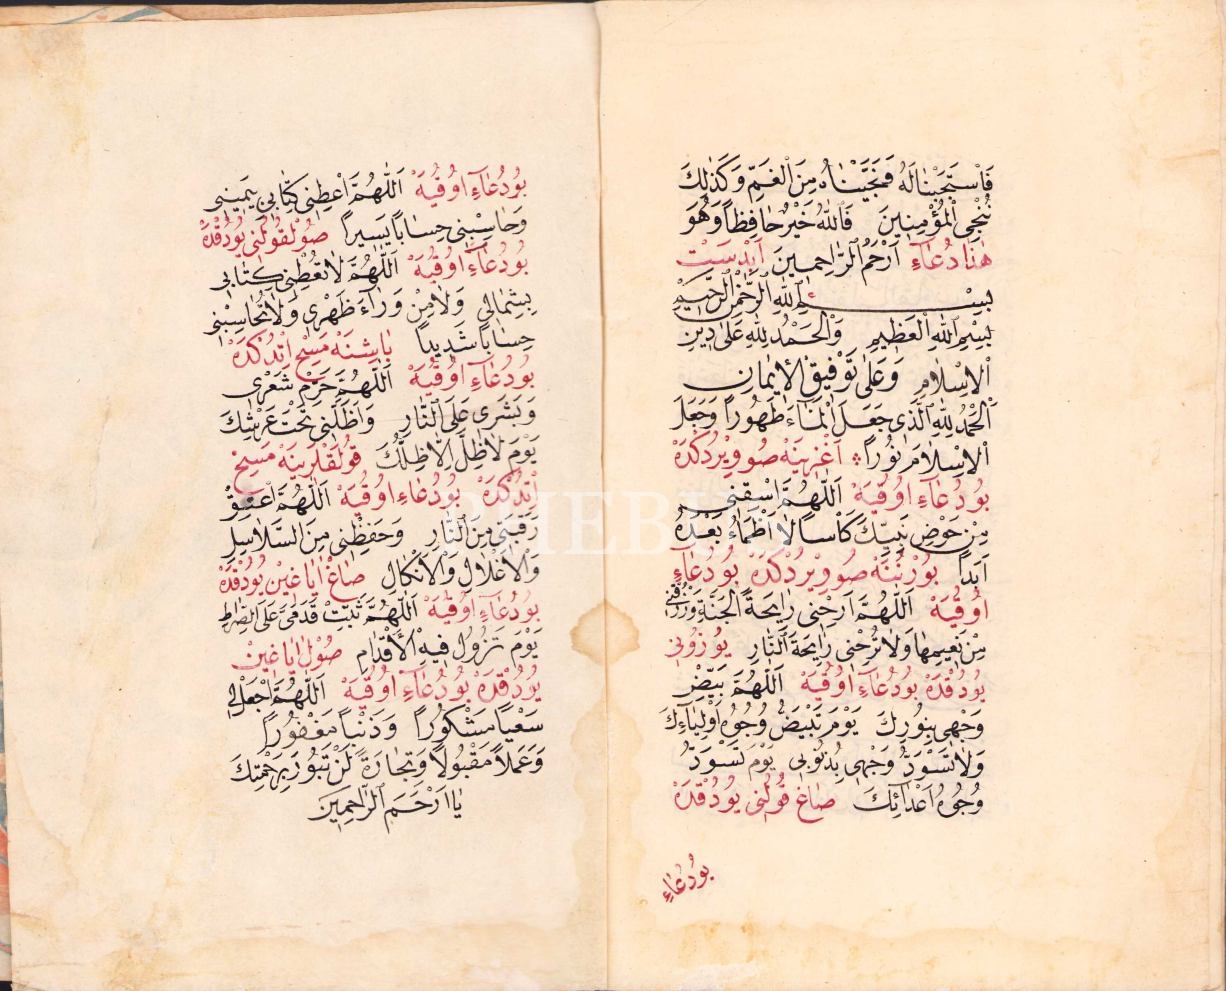 فَاسْتَجَبْنَا لَهُ فَنَجَّيْنَاهُ مِنَ الْغَمِّ وَكَذٰلِكَ
نُنْجِي الْمُؤْمِنِينَ فَاللّٰهُ خَيْرٌ حَافِظًا وَهُوَ
هٰذَا دُعَاءِ اَرْحَمُ الرَّاحِمِينَ اَبْدَسْتْ
بِسْمِ اللّٰهِ الرَّحْمٰنِ الرَّحِيمِ
بِسْمِ اللّٰهِ الْعَظِيمِ وَالْحَمْدُ لِلّٰهِ عَلٰى دِينِ
الْاِسْلَامِ وَعَلٰى تَوْفِيقِ الْاِيمَانِ
اَلْحَمْدُ لِلّٰهِ الَّذِى جَعَلَ الْمَاءَ طَهُورًا وَجَعَلَ
الْاِسْلَامَ نُورًا اَغْزِينَهْ صُو وِيرْدُكْدَهْ
بُودُعَاءِ اوُقِيَهْ اَللّٰهُمَّ اسْقِنِى
مِنْ حَوْضِ نَبِيِّكَ كَأْسًا لَا اَظْمَاءُ بَعْدَهُ
اَبَدًا بُورْنُنَهْ صُو وِيرْدُكْدَهْ بُودُعَاءِ
اوُقِيَهْ اَللّٰهُمَّ اَرِحْنِى رَايِحَةَ الْجَنَّةِ وَرْزُقْنِى
مِنْ نَعِيمِهَا وَلَا تُرِحْنِى رَايِحَةَ النَّارِ يُوزُونِى
يُودُقْدَهْ بُودُعَاءِ اوُقِيَهْ اَللّٰهُمَّ بَيِّضْ
وَجْهِى بِنُورِكَ يَوْمَ تَبْيَضُّ وُجُوهُ اَوْلِيَاءِكَ
وَلَا تُسَوِّدْ وَجْهِى بِذُنُوبِى يَوْمَ تَسْوَدُّ
وُجُوهُ اَعْدَائِكَ صَاغْ قُولُنِى يُودُقْدَهْ
بُودُعَاءِ
بُودُعَاءِ اوُقِيَهْ اَللّٰهُمَّ اَعْطِنِى كِتَابِى بِيَمِينِى
وَحَاسِبْنِى حِسَابًا يَسِيرًا صُولْ قُولُنِى يُودُقْدَهْ
بُودُعَاءِ اوُقِيَهْ اَللّٰهُمَّ لَا تُعْطِنِى كِتَابِى
بِشِمَالِى وَلَا مِنْ وَرَاءَ ظَهْرِى وَلَا تُحَاسِبْنِى
حِسَابًا شَدِيدًا بَاشِنَهْ مَسِحْ اِتْدُكْدَهْ
بُودُعَاءِ اوُقِيَهْ اَللّٰهُمَّ حَرِّمْ شَعْرِى
وَبَشَرِى عَلَى النَّارِ وَاَظِلَّنِى تَحْتَ عَرْشِكَ
يَوْمَ لَا ظِلَّ اِلَّا ظِلُّكَ قُولَقْلَرِينَهْ مَسِحْ
اِتْدُكْدَهْ بُودُعَاءِ اوُقِيَهْ اَللّٰهُمَّ اَعْتِقْ
رَقَبَتِى مِنَ النَّارِ وَحَفِظْنِى مِنَ السَّلَاسِلِ
وَالْاَغْلَالِ وَالْاَنْكَالِ صَاغْ اَيَاغِينْ يُودُقْدَهْ
بُودُعَاءِ اوُقِيَهْ اَللّٰهُمَّ ثَبِّتْ قَدَمَىَّ عَلَى الصِّرَاطِ
يَوْمَ تَزُولُ فِيهِ الْاَقْدَامِ صُولْ اَيَاغِينْ
يُودُقْدَهْ بُودُعَاءِ اوُقِيَهْ اَللّٰهُمَّ اجْعَلْ لِى
سَعْيًا مَشْكُورًا وَذَنْبًا مَغْفُورًا
وَعَمَلًا مَقْبُولًا وَتِجَارَةً لَنْ تَبُورَ بِرَحْمَتِكَ
يَا اَرْحَمَ الرَّاحِمِينَ